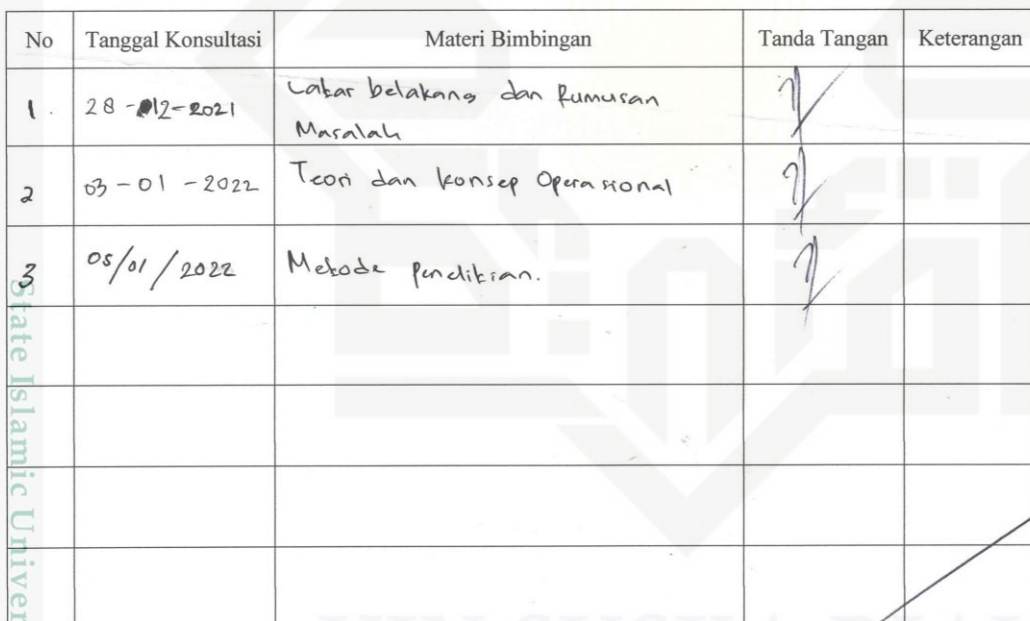 No Tanggal Konsultasi Materi Bimbingan Tanda Tangan Keterangan
1. 28-12-2021 Latar belakang dan Rumusan
Masalah
2 03-01-2022 Teori dan konsep Operasional
3 05/01/2022 Metode penelitian.
State Islamic Univer